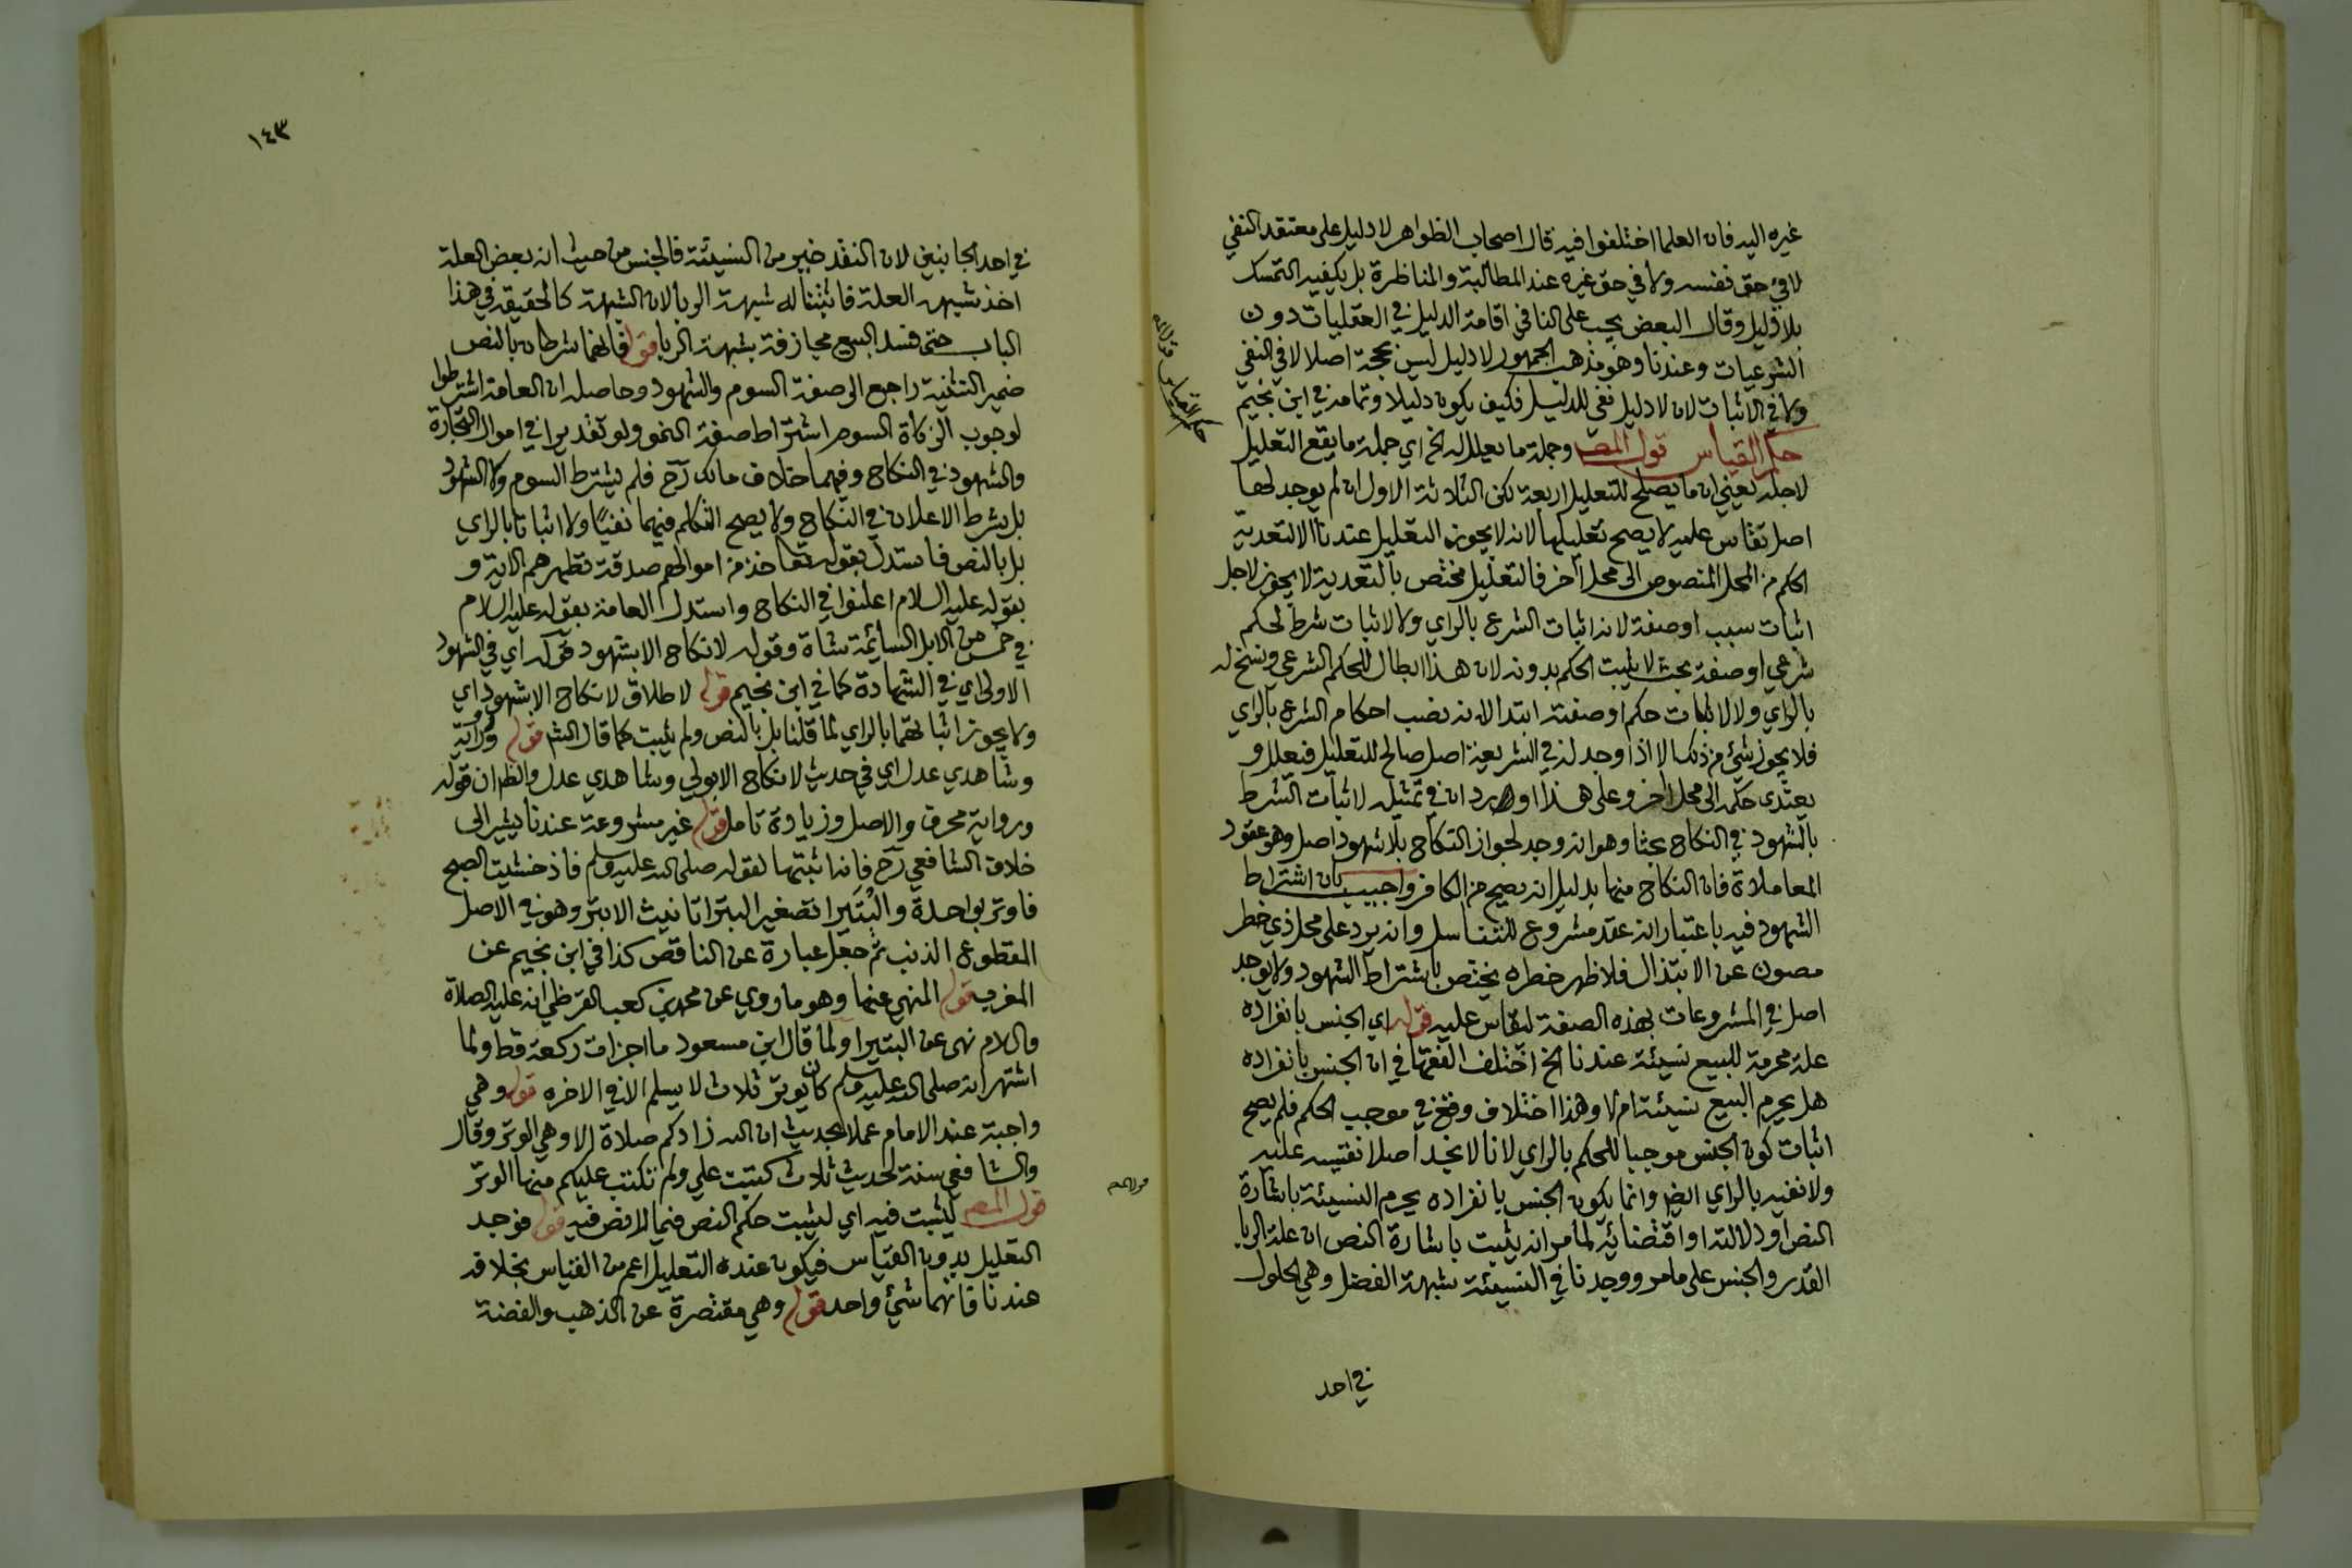 غيره اليه فان العلما اختلفوا فيه قال اصحاب الظواهر لا دليل على معتقد النفي
لا في حق نفسه ولا في حق غيره عند المطالبة والمناظرة بل يكفيه التمسك
بلا دليل وقال البعض يجب على النافي اقامة الدليل في العقليات دون
الشرعيات وعندنا وهو مذهب الجمهور لا دليل ليس بحجة اصلا لا في النفي
ولا في الاثبات لان لا دليل نفي للدليل فكيف يكون دليلا وتمامه في ابن نجيم
حكم القياس قول المصـ وجملة ما يعلل له الخ اي جملة ما يقع التعليل
لاجله يعني ان ما يصلح للتعليل اربعة لكن الثلاثة الاول ان لم يوجد لها
اصل تقاس عليه لا يصح تعليلها لانه لا يجوز التعليل عندنا الا لتعدية
الحكم من المحل المنصوص الى محل آخر فالتعليل مختص بالتعدية لا يجوز لاجل
اثبات سبب او صفة لانه اثبات الشرع بالراي ولا لاثبات شرط لحكم
شرعي او صفة بحيث لا يثبت الحكم بدونه لان هذا ابطال للحكم الشرعي ونسخ له
بالراي ولا لاثبات حكم او صفته ابتدا لانه نصب احكام الشرع بالراي
فلا يجوز شئ من ذلك الا اذا وجد له في الشريعة اصل صالح للتعليل فيعلل و
يعتدى حكمه الى محل آخر وعلى هذا اورد ان في تمثيله لاثبات الشرط
بالشهود في النكاح بحثا وهو انه وجد لجواز النكاح بلا شهود اصل وهو عقود
المعاملاة فان النكاح منها بدليل انه يصح من الكافر واجيب بان اشتراط
الشهود فيه باعتبار انه عقد مشروع للتناسل وانه يرد على محل ذي خطر
مصون عن الابتذال فلاظهر خطره يختص باشتراط الشهود ولا يوجد
اصل في المشروعات بهذه الصفة ليقاس عليه قوله اي الجنس بانفراده
علة محرمة للبيع نسيئة عندنا الخ اختلف الفقها في ان الجنس بانفراده
هل يحرم البيع نسيئة ام لا وهذا اختلاف وقع في موجب الحكم فلم يصح
اثبات كون الجنس موجبا للحكم بالراي لانا لا نجد اصلا نقيسه عليه
ولا نفيه بالراي ايضا وانما يكون الجنس بانفراده يحرم النسيئة باشارة
النص او دلالته او اقتضائه لما مر انه يثبت باشارة النص ان علة الربا
القدر والجنس على ما مر ووجدنا في النسيئة شبهة الفضل وهي الحلول
في احد
حكم القياس قوله
١٤٣
في احد الجانبين لان النقد خير من النسيئة فالجنس من حيث انه بعض العلة
اخذ شبهه العلة فاثبتنا له شبهة الربا لان الشبهة كالحقيقة في هذا
الباب حتى فسد البيع مجازفة بشبهة الربا قوله فانهما شرطان بالنص
ضمير التثنية راجع الى صفة السوم والشهود وحاصله ان العامة اشترطوا
لوجوب الزكاة السوم اشتراط صفة النمو ولو تقديرا في اموال التجارة
والشهود في النكاح وفيهما خلاف مالك رح فلم يشترط السوم ولا الشهود
بل يشرط الاعلان في النكاح ولا يصح التكلم فيهما نفيًا ولا اثباتا بالراي
بل بالنص فاستدل بقوله تعا خذ من اموالهم صدقة تطهرهم الاية و
بقوله عليه السلام اعلنوا في النكاح واستدل العامة بقوله عليه السلام
في خمس من الابل السائمة شاة وقوله لا نكاح الا بشهود قوله اي في الشهود
الاولى اي في الشهادة كما في ابن نجيم قوله لاطلاق لا نكاح الا بشهود اي
ولا يجوز اثباتهما بالراي لما قلنا بل بالنص ولم يثبت كما قال الشم قوله ورواية
وشاهدي عدل اي في حديث لا نكاح الا بولي وشاهدي عدل والظ ان قوله
ورواية محرف والاصل وزيادة تامل قوله غير مشروعة عندنا يشير الى
خلاف الشافعي رح فانه اثبتها لقوله صلى الله عليه وسلم فاذ خشيت الصبح
فاوتر بواحدة والبُتَيرا تصغير البترا تانيث الابتر وهو في الاصل
المقطوع الذنب ثم جعل عبارة عن الناقص كذا في ابن نجيم عن
المغرب قوله المنهي عنها وهو ما روي عن محمد بن كعب القرظي انه عليه الصلاة
والسلام نهى عن البتيرا ولما قال ابن مسعود ما اجزات ركعة قط ولما
اشتهر انه صلى الله عليه وسلم كان يوتر ثلاث لا يسلم الا في الاخره قوله وهي
واجبة عند الامام عملا بحديث ان الله زادكم صلاة الا وهي الوتر وقال
والشافعي سنة لحديث ثلاث كتبت علي ولم تكتب عليكم منها الوتر
قول المصـ ليثبت فيه اي ليثبت حكم النص فيما لا نص فيه قوله فوجد
التعليل بدون القياس فيكون عنده التعليل اعم من القياس بخلافه
عندنا فانهما شئ واحد قوله وهي مقتصرة عن الذهب والفضة